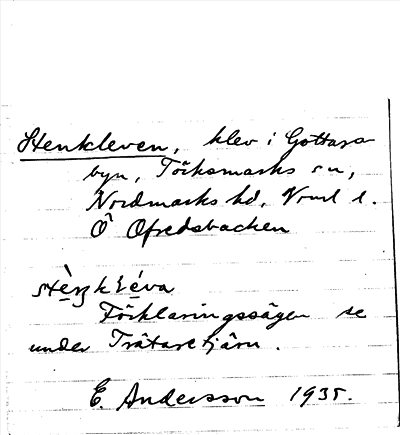 Stenkleven, klev i Gottarsbyn, Töcksmarks sn,
Nordmarks hd, Vrml l.
Ô Ofredsbacken
stè̱ŋkLé̱va
Förklaringssägen se
under Trätaretjärn.
E. Andersson 1935.